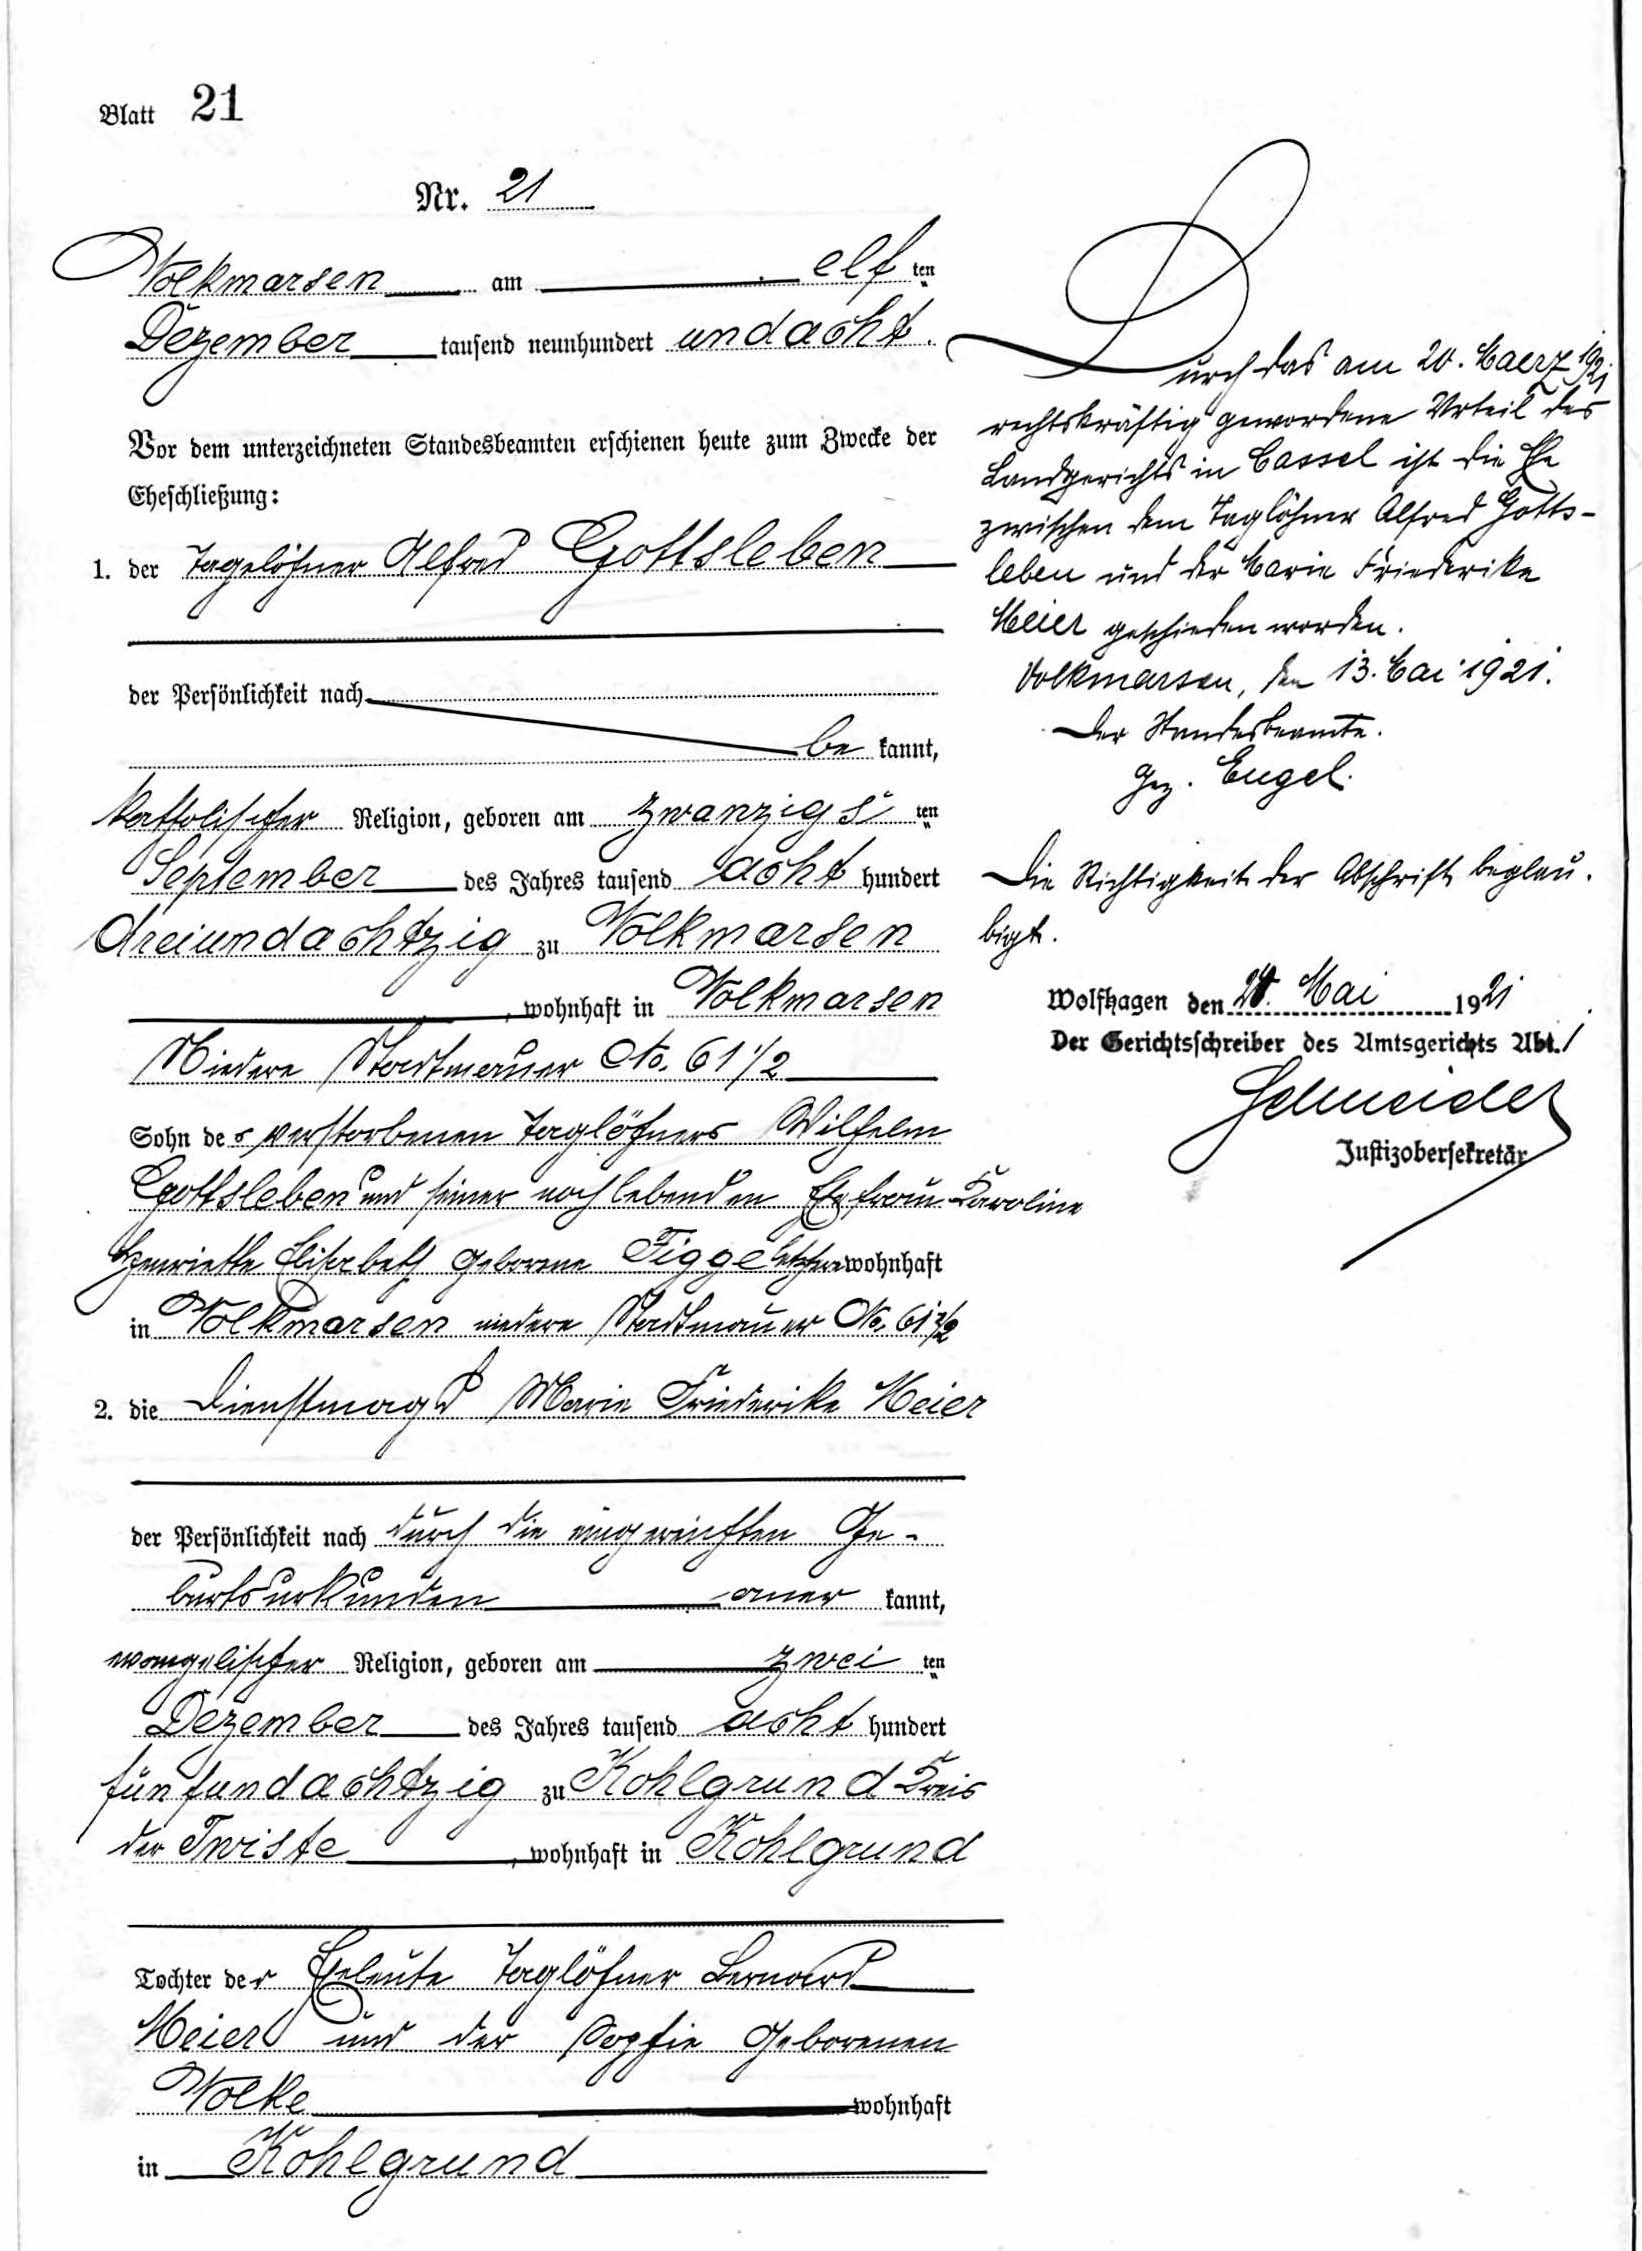 Blatt 21
Nr. 21
Volkmarsen am elf ten
Dezember tausend neunhundert und acht.
Vor dem unterzeichneten Standesbeamten erschienen heute zum Zwecke der
Eheschließung:
1. der Tagelöhner Alfred Gottsleben
der Persönlichkeit nach
be kannt,
katholischer Religion, geboren am zwanzigs ten
September des Jahres tausend acht hundert
dreiundachtzig zu Volkmarsen
, wohnhaft in Volkmarsen
Niedere Stadtmauer No. 61 1/2
Sohn des verstorbenen Taglöhners Wilhelm
Gottsleben und seiner noch lebenden Ehefrau Karoline
Henriette Elisabeth geborene Figge letztere wohnhaft
in Volkmarsen niedere Stadtmauer No. 61 1/2
2. die Dienstmagd Marie Friederike Meier
der Persönlichkeit nach durch die eingereichten Ge-
burtsurkunden aner kannt,
evangelischer Religion, geboren am zwei ten
Dezember des Jahres tausend acht hundert
fünfundachtzig zu Kohlgrund Kreis
der Twiste, wohnhaft in Kohlgrund
Tochter der Eheleute Taglöhner Bernard
Meier und der Sophie geborenen
Volke wohnhaft
in Kohlgrund
Durch das am 20. Maerz 1921
rechtskräftig gewordene Urteil des
Landgerichts in Cassel ist die Ehe
zwischen dem Taglöhner Alfred Gotts-
leben und der Marie Friederike
Meier geschieden worden.
Volkmarsen, den 13. Mai 1921.
Der Standesbeamte.
gez. Engel.
Die Richtigkeit der Abschrift beglau-
bigt.
Wolfhagen den Mai 1921
Der Gerichtsschreiber des Amtsgerichts Abt. 1
Schneider
Justizobersekretär